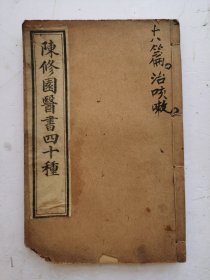 十八篇治咳嗽
陳修園醫書四十種